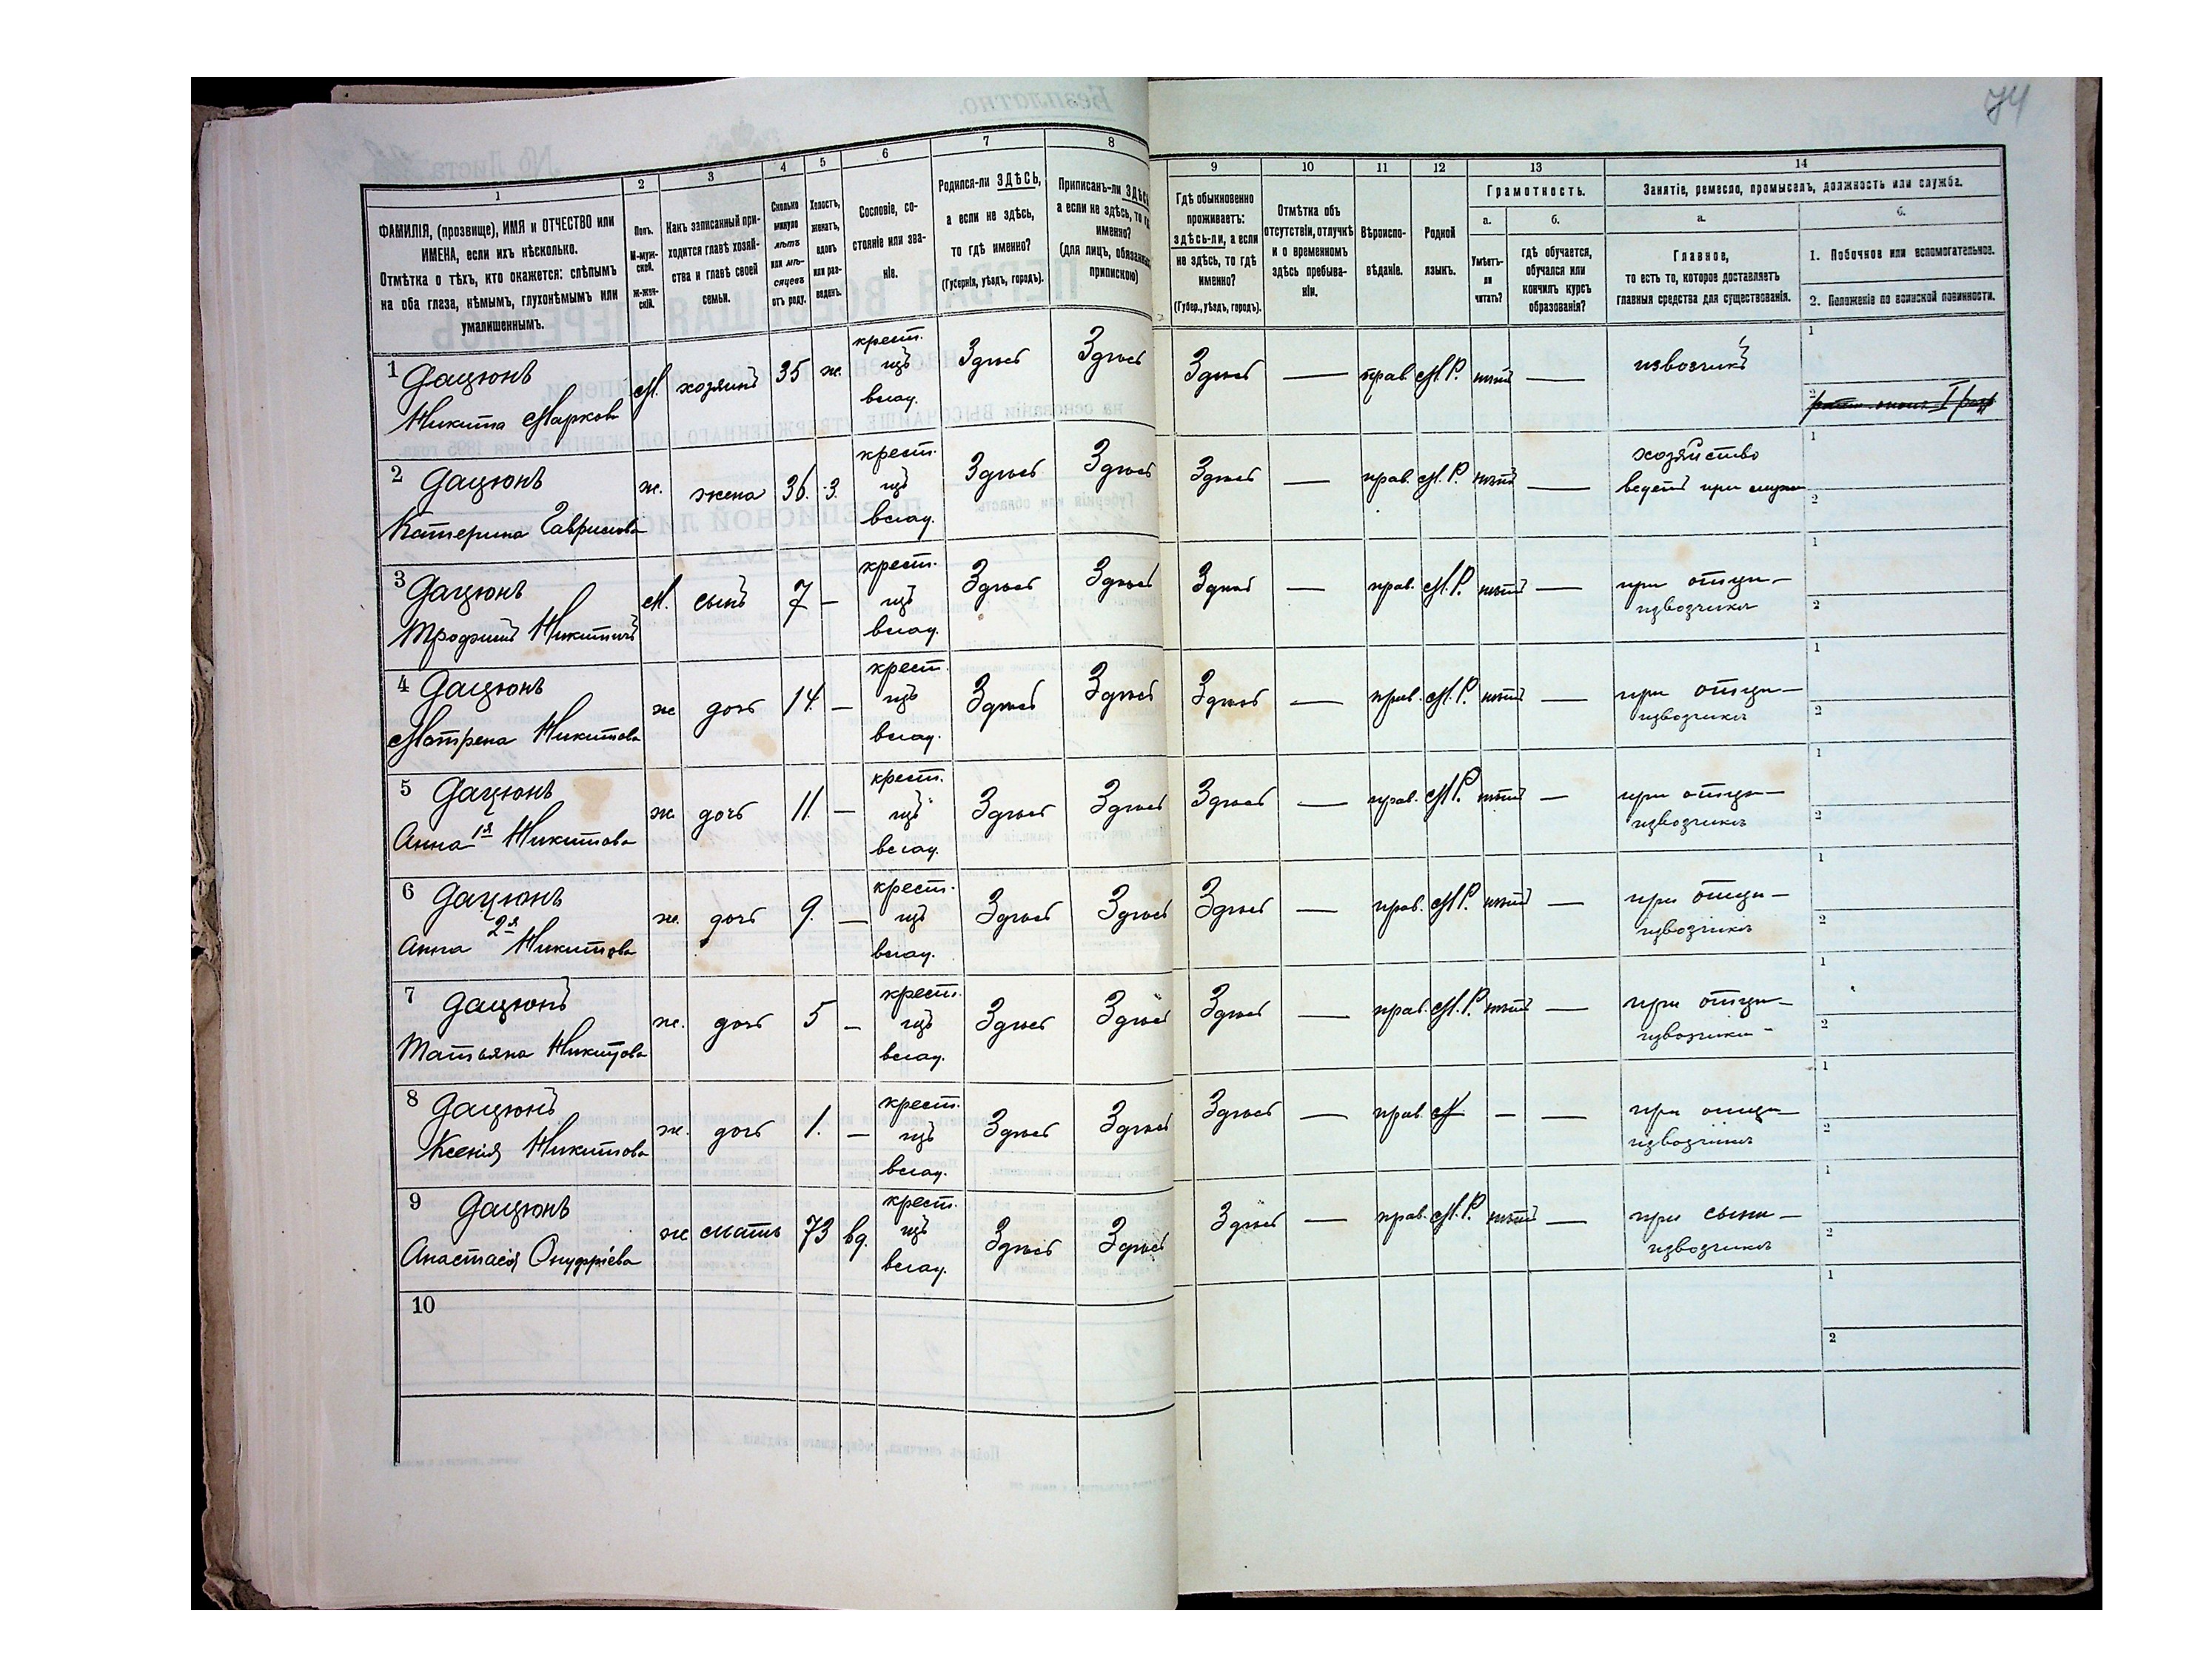 74
1
ФАМИЛІЯ, (прозвище), ИМЯ и ОТЧЕСТВО или
ИМЕНА, если ихъ нѣсколько.
Отмѣтка о тѣхъ, кто окажется: слѣпымъ
на оба глаза, нѣмымъ, глухонѣмымъ или
умалишеннымъ.
2
Полъ.
М-муж-
ской.
Ж-жен-
скій.
3
Какъ записанный при-
ходится главѣ хозяй-
ства и главѣ своей
семьи.
4
Сколько
минуло
лѣтъ
или мѣ-
сяцевъ
отъ роду.
5
Холостъ,
женатъ,
вдовъ
или раз-
веденъ.
6
Сословіе, со-
стояніе или зва-
ніе.
7
Родился-ли ЗДѢСЬ,
а если не здѣсь,
то гдѣ именно?
(Губернія, уѣздъ, городъ).
8
Приписанъ-ли ЗДѢСЬ
а если не здѣсь, то
именно?
(для лицъ, обязанныхъ
припискою)
9
Гдѣ обыкновенно
проживаетъ:
здѣсь-ли, а если
не здѣсь, то гдѣ
именно?
(Губер., уѣздъ, городъ).
10
Отмѣтка объ
отсутствіи, отлучкѣ
и о временномъ
здѣсь пребыва-
ніи.
11
Вѣроиспо-
вѣданіе.
12
Родной
языкъ.
13
Грамотность.
а.
Умѣетъ-
ли
читать?
б.
гдѣ обучается,
обучался или
кончилъ курсъ
образованія?
14
Занятіе, ремесло, промыселъ, должность или служба.
а.
Главное,
то есть то, которое доставляетъ
главныя средства для существованія.
б.
1. Побочное или вспомогательное.
2. Положеніе по воинской повинности.
1 Дацюнъ
Никита Марковъ
М. хозяинъ 35 ж.
крест.
изъ
влад.
Здѣсь Здѣсь Здѣсь — прав. М.Р. нѣтъ —
извозчикъ
1
2
2 Дацюнъ
Катерина Гаврилова
ж. жена 36. з.
крест.
изъ
влад.
Здѣсь Здѣсь Здѣсь — прав. М.Р. нѣтъ —
хозяйство
ведетъ при мужѣ
1
2
3 Дацюнъ
Трофимъ Никитичъ
М. сынъ 7 —
крест.
изъ
влад.
Здѣсь Здѣсь Здѣсь — прав. М.Р. нѣтъ —
при отцѣ —
извозчикѣ
1
2
4 Дацюнъ
Матрена Никитова
ж дочь 14. —
крест.
изъ
влад.
Здѣсь Здѣсь Здѣсь — прав. М.Р. нѣтъ —
при отцѣ —
извозчикѣ
1
2
5 Дацюнъ
Анна 1я Никитова
ж. дочь 11. —
крест.
изъ
влад.
Здѣсь Здѣсь Здѣсь — прав. М.Р. нѣтъ —
при отцѣ —
извозчикѣ
1
2
6 Дацюнъ
Анна 2я Никитова
ж. дочь 9. —
крест.
изъ
влад.
Здѣсь Здѣсь Здѣсь — прав. М.Р. нѣтъ —
при отцѣ —
извозчикѣ
1
2
7 Дацюнъ
Татьяна Никитова
ж. дочь 5 —
крест.
изъ
влад.
Здѣсь Здѣсь Здѣсь — прав. М.Р. нѣтъ —
при отцѣ —
извозчикѣ
1
2
8 Дацюнъ
Ксенія Никитова
ж. дочь 1. —
крест.
изъ
влад.
Здѣсь Здѣсь Здѣсь — прав. — —
при отцѣ —
извозчикѣ
1
2
9 Дацюнъ
Анастасія Онуфріева
ж мать 73 вд.
крест.
изъ
влад.
Здѣсь Здѣсь Здѣсь — прав. М.Р. нѣтъ —
при сынѣ —
извозчикѣ
1
2
10
1
2